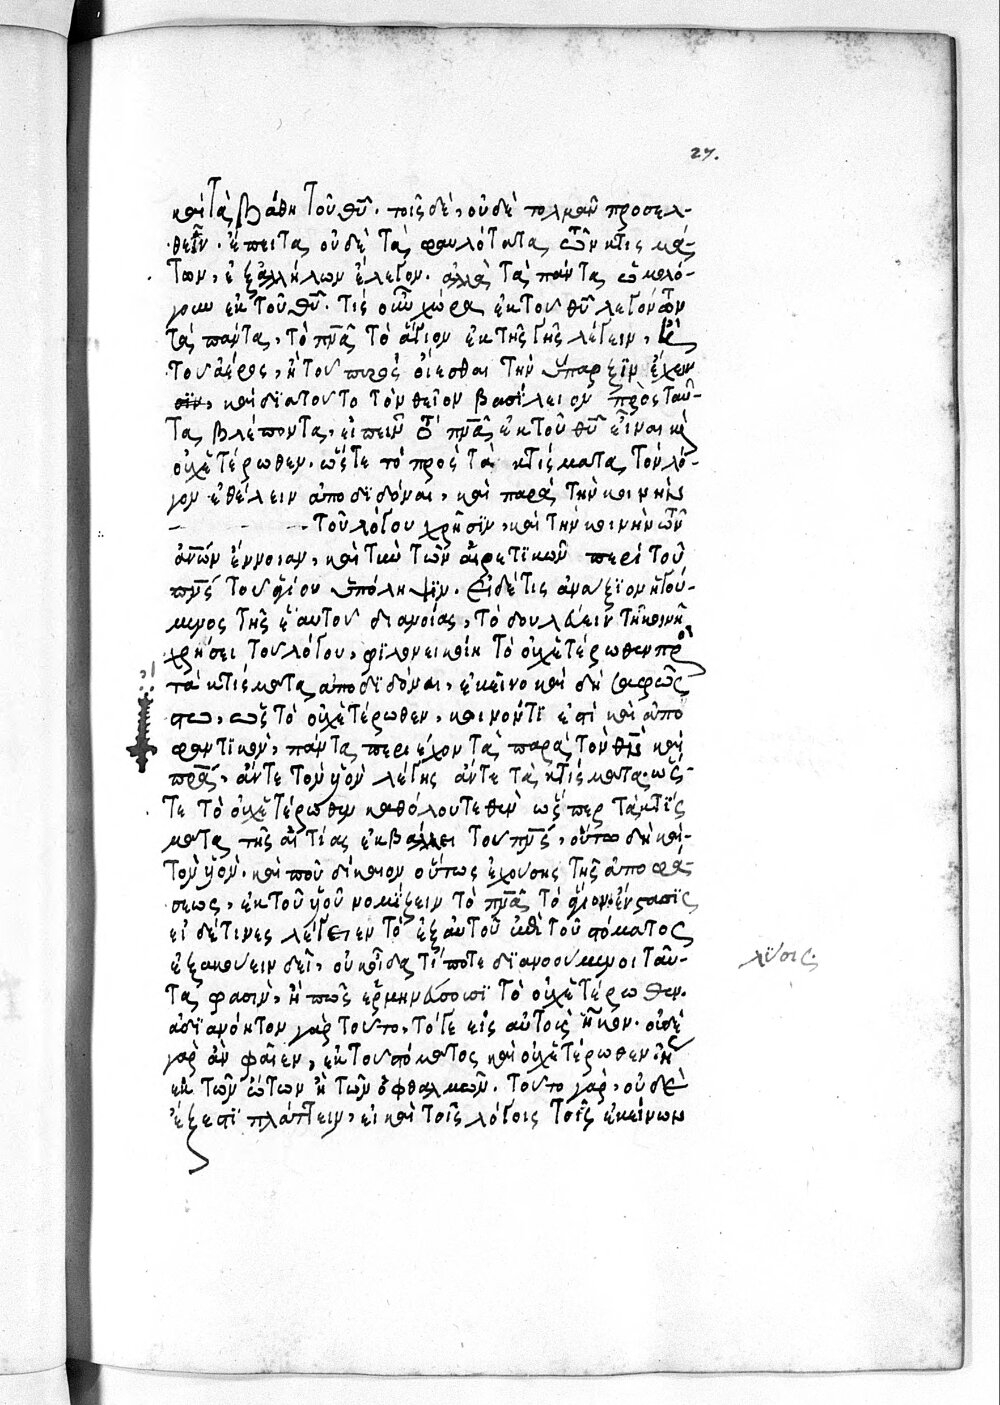 27.
καὶ τὰ βάθη τοῦ θῦ. τοῖς δὲ, οὐδὲ τολμᾶν προσελ-
θεῖν. ἔπειτα οὐδὲ τὰ φαυλότατα τῶν κτισμά-
των, ἐξ ἀλλήλων ἔλεγον. ἀλλὰ τὰ πάντα ὡμολό-
γουν ἐκ τοῦ θῦ. τίς οὖν χώρα ἐκ τοῦ θῦ λεγόντων
τὰ πάντα, τὸ πνᾶ τὸ ἅγιον ἐκ τῆς γῆς λέγειν, ἢ ἐκ
τοῦ ἀέρος, ἢ τοῦ πυρὸς οἴεσθαι τὴν ὕπαρξϊν ἔχειν
καὶ διατοῦτο τὸν θεῖον βασίλειον πρὸς ταῦ-
τα βλέποντα, εἰπεῖν τὸ πνᾶ ἐκ τοῦ θῦ εἶναι καὶ
οὐχ ἑτέρωθεν. ὥστε τὸ πρὸς τὰ κτίσματα τὸν λό-
γον ἐθέλειν ἀποδϊδόναι, καὶ παρὰ τὴν κοινὴν
τοῦ λόγου χρῆσϊν, καὶ τὴν κοινὴν τῶν
ἀνων ἔννοιαν, καὶ τὴν τῶν αἱρετϊκῶν περὶ τοῦ
πνς τοῦ ἁγίου ὑπόληψϊν. Εἰ δέ τις ἀνάξϊον ἡγού-
μενος τῆς ἑαυτοῦ διανοίας, τὸ δουλεύειν τῇ κοινῇ
χρήσει τοῦ λόγου, φϊλονεικοίη τὸ οὐχ ἑτέρωθεν πρὸς
τὰ κτίσματα ἀποδϊδόναι, ἐκεῖνο καὶ δὴ σαφῶς
ὡς τὸ οὐχ ἑτέρωθεν, κοινόν τϊ ἐστὶ καὶ ἀπο
φαντϊκὸν, πάντα περιέχον τὰ παρὰ τὸν θν καὶ
πρᾶ, ἄν τε τὸν υἱὸν λέγῃς ἄν τε τὰ κτίσματα. ὥσ-
τε τὸ οὐχ ἑτέρωθεν καθόλου τεθὲν ὥσπερ τὰ κτίσ
ματα τῆς αἰτίας ἐκβάλλει τοῦ πνς, οὕτω δὴ καὶ
τὸν υἱόν. καὶ ποῦ δίκαιον οὕτως ἐχούσης τῆς ἀποφά-
σεως, ἐκ τοῦ υἱοῦ νομίζειν τὸ πνᾶ τὸ ἅγιον. ἔνστασϊς
εἰ δέ τινες λέγετεν τὸ ἐξ αὐτοῦ καὶ τοῦ στόματος
ἐξακούειν δεῖ, οὐκ οἶδα τί ποτε δϊανοούμενοι ταῦ-
τα φασὶν, ἢ πῶς ἑρμηνεύσουσϊ τὸ οὐχ ἑτέρωθεν.
ἀδϊανόητον γὰρ τοῦτο, τό γε εἰς αὐτοὺς ἧκον. οὐδὲ
γὰρ ἂν φαῖεν, ἐκ τοῦ στόματος καὶ οὐχ ἑτέρωθεν ἢ
ἐκ τῶν ὤτων ἢ τῶν ὀφθαλμῶν. τοῦτο γὰρ, οὐδὲ
ἔξεστϊ πλάττειν, εἰ καὶ τοῖς λόγοις τοῖς ἐκείνων
λύσις.